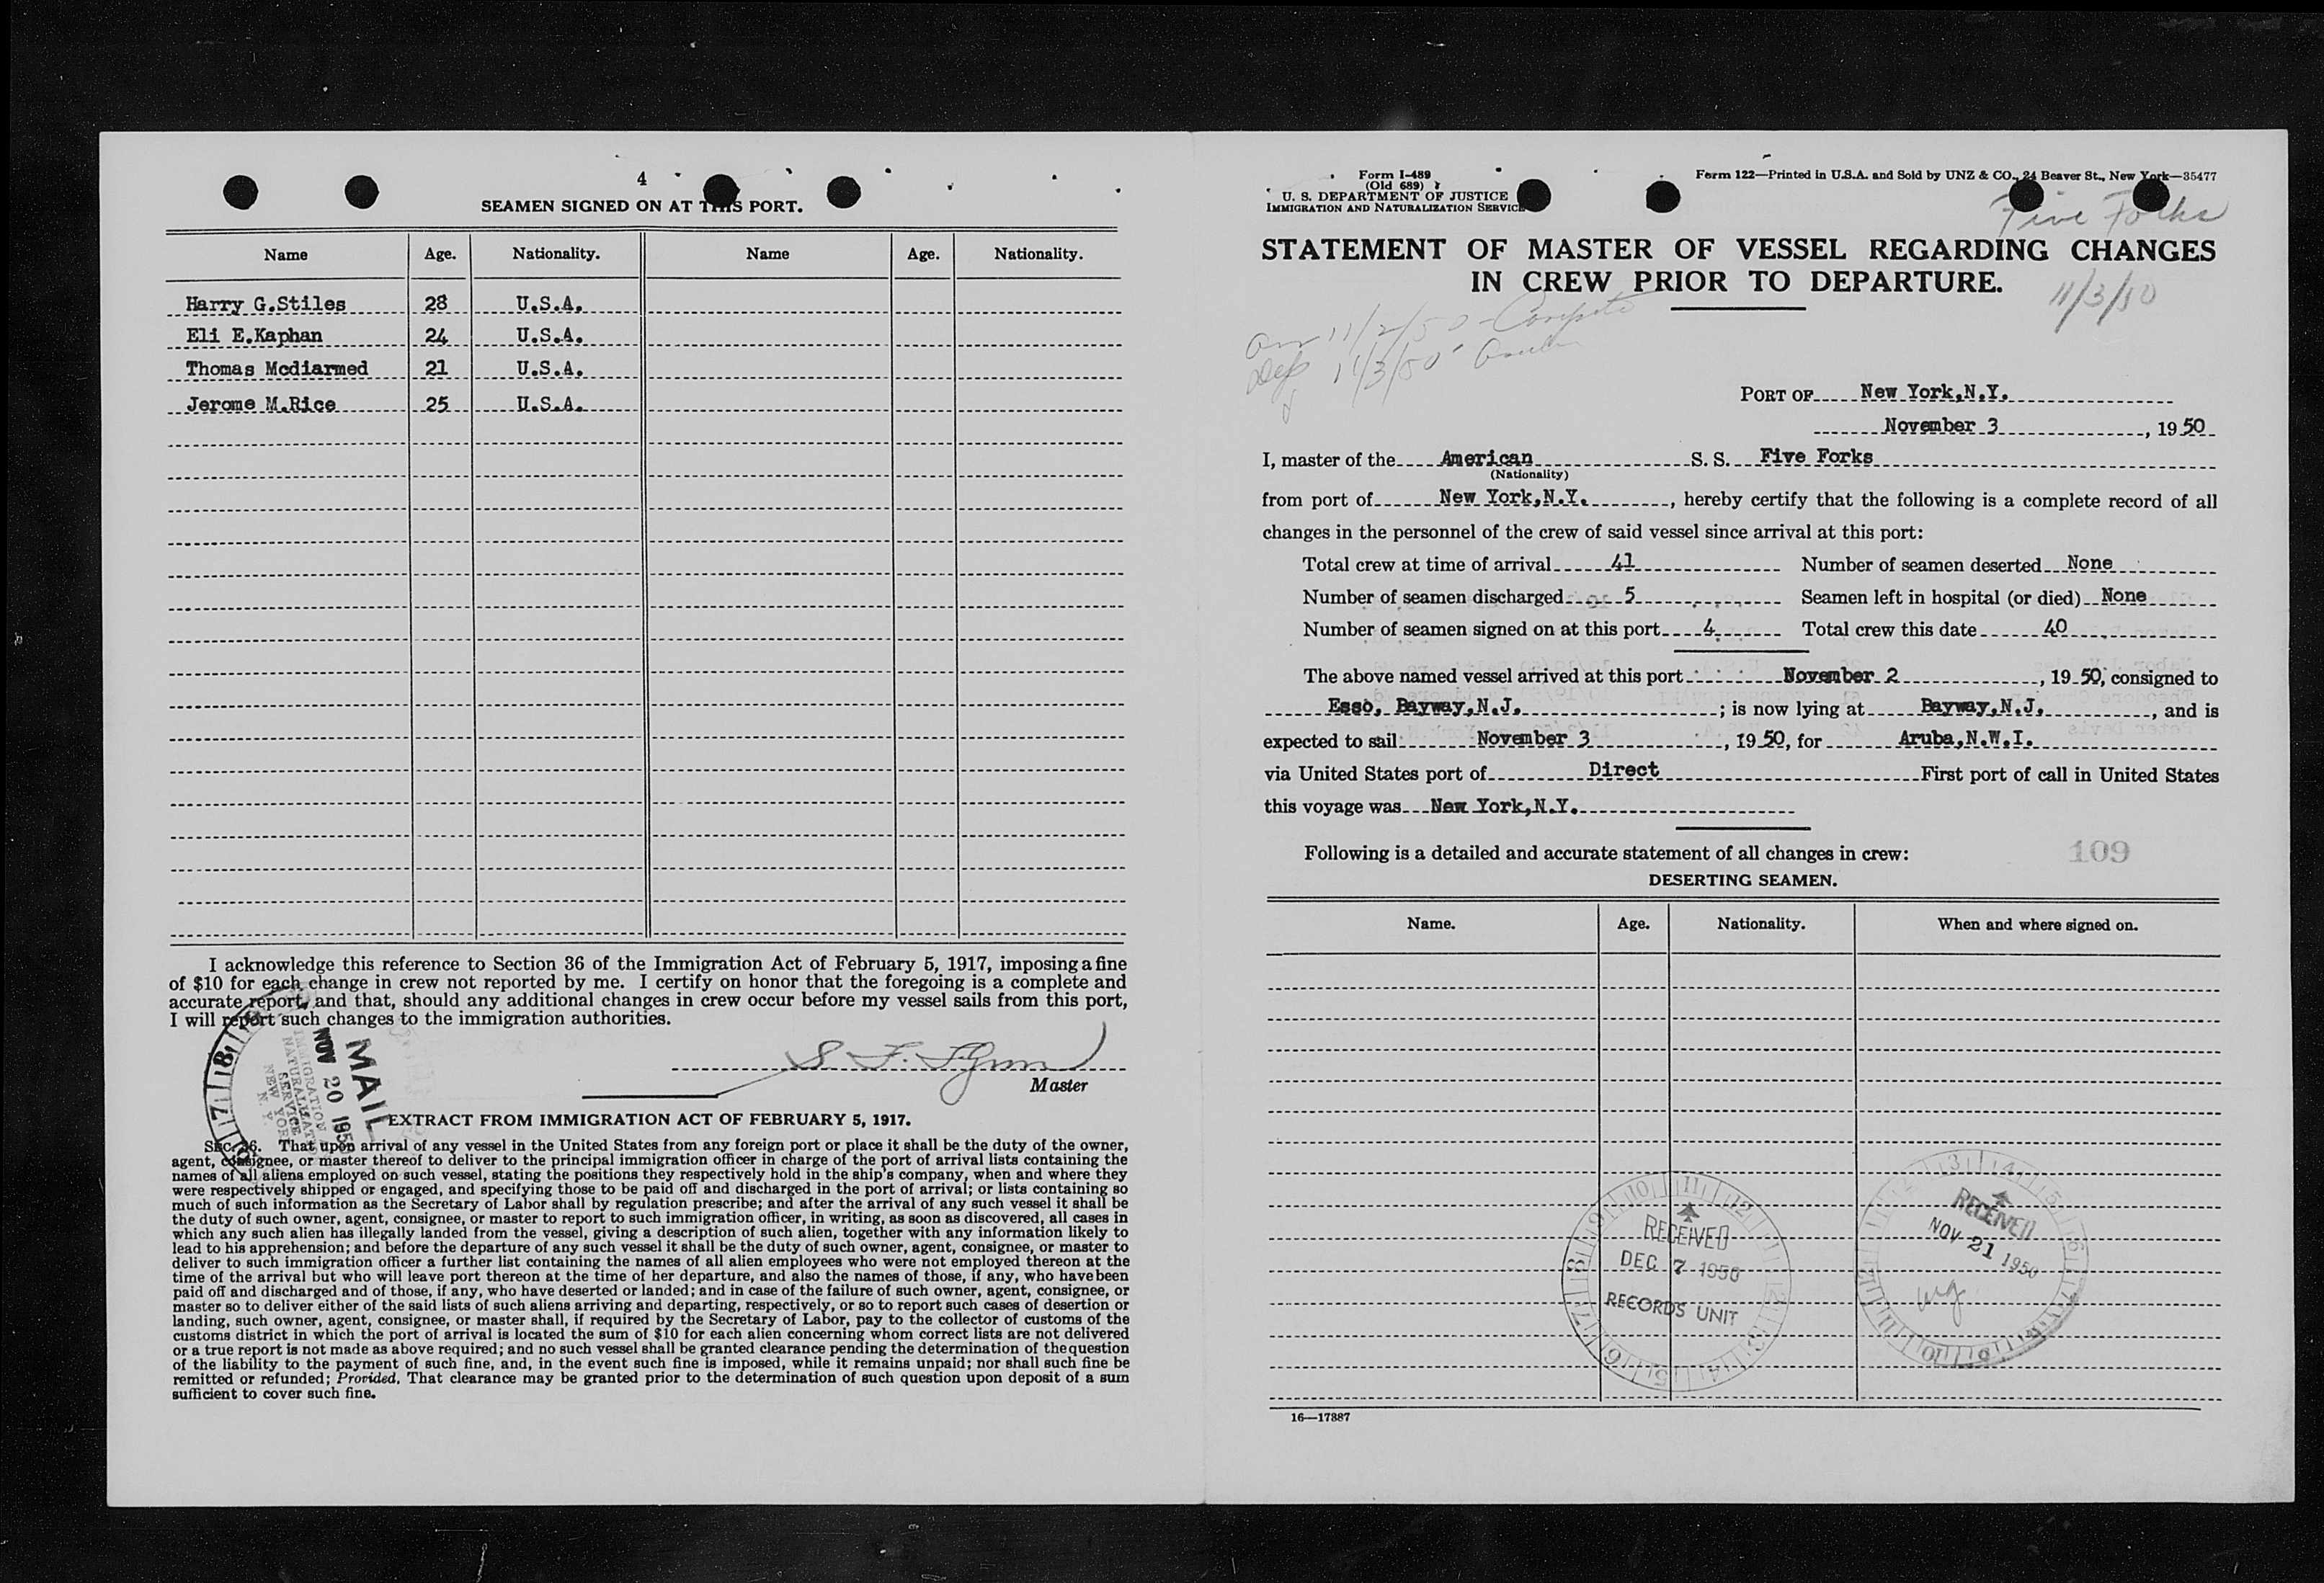 4
SEAMEN SIGNED ON AT THIS PORT.
Name Age. Nationality. Name Age. Nationality.
Harry G.Stiles 28 U.S.A.
Eli E.Kaphan 24 U.S.A.
Thomas Mcdiarmed 21 U.S.A.
Jerome M.Rice 25 U.S.A.
I acknowledge this reference to Section 36 of the Immigration Act of February 5, 1917, imposing a fine
of $10 for each change in crew not reported by me. I certify on honor that the foregoing is a complete and
accurate report, and that, should any additional changes in crew occur before my vessel sails from this port,
I will report such changes to the immigration authorities.
Master
MAIL
NOV 20 195
IMMIGRATION
NATURALIZAT
SERVICE
NEW YOR
N. Y.
EXTRACT FROM IMMIGRATION ACT OF FEBRUARY 5, 1917.
SEC. 36. That upon arrival of any vessel in the United States from any foreign port or place it shall be the duty of the owner,
agent, consignee, or master thereof to deliver to the principal immigration officer in charge of the port of arrival lists containing the
names of all aliens employed on such vessel, stating the positions they respectively hold in the ship's company, when and where they
were respectively shipped or engaged, and specifying those to be paid off and discharged in the port of arrival; or lists containing so
much of such information as the Secretary of Labor shall by regulation prescribe; and after the arrival of any such vessel it shall be
the duty of such owner, agent, consignee, or master to report to such immigration officer, in writing, as soon as discovered, all cases in
which any such alien has illegally landed from the vessel, giving a description of such alien, together with any information likely to
lead to his apprehension; and before the departure of any such vessel it shall be the duty of such owner, agent, consignee, or master to
deliver to such immigration officer a further list containing the names of all alien employees who were not employed thereon at the
time of the arrival but who will leave port thereon at the time of her departure, and also the names of those, if any, who have been
paid off and discharged and of those, if any, who have deserted or landed; and in case of the failure of such owner, agent, consignee, or
master so to deliver either of the said lists of such aliens arriving and departing, respectively, or so to report such cases of desertion or
landing, such owner, agent, consignee, or master shall, if required by the Secretary of Labor, pay to the collector of customs of the
customs district in which the port of arrival is located the sum of $10 for each alien concerning whom correct lists are not delivered
or a true report is not made as above required; and no such vessel shall be granted clearance pending the determination of the question
of the liability to the payment of such fine, and, in the event such fine is imposed, while it remains unpaid; nor shall such fine be
remitted or refunded; Provided, That clearance may be granted prior to the determination of such question upon deposit of a sum
sufficient to cover such fine.
Form I-489
(Old 689)
U. S. DEPARTMENT OF JUSTICE
IMMIGRATION AND NATURALIZATION SERVICE
Form 122—Printed in U.S.A. and Sold by UNZ & CO., 24 Beaver St., New York—35477
Five Forks
STATEMENT OF MASTER OF VESSEL REGARDING CHANGES
IN CREW PRIOR TO DEPARTURE.
11/3/50
11/2/50
11/3/50
PORT OF New York,N.Y.
November 3, 1950
I, master of the American S. S. Five Forks
(Nationality)
from port of New York,N.Y., hereby certify that the following is a complete record of all
changes in the personnel of the crew of said vessel since arrival at this port:
Total crew at time of arrival 41 Number of seamen deserted None
Number of seamen discharged 5 Seamen left in hospital (or died) None
Number of seamen signed on at this port 4 Total crew this date 40
The above named vessel arrived at this port November 2, 1950, consigned to
Esso, Bayway,N.J.; is now lying at Bayway,N.J., and is
expected to sail November 3, 1950, for Aruba,N.W.I.
via United States port of Direct First port of call in United States
this voyage was New York,N.Y.
Following is a detailed and accurate statement of all changes in crew:
109
DESERTING SEAMEN.
Name. Age. Nationality. When and where signed on.
RECEIVED
DEC 7 1950
RECORDS UNIT
RECEIVED
NOV 21 1950
16—17887